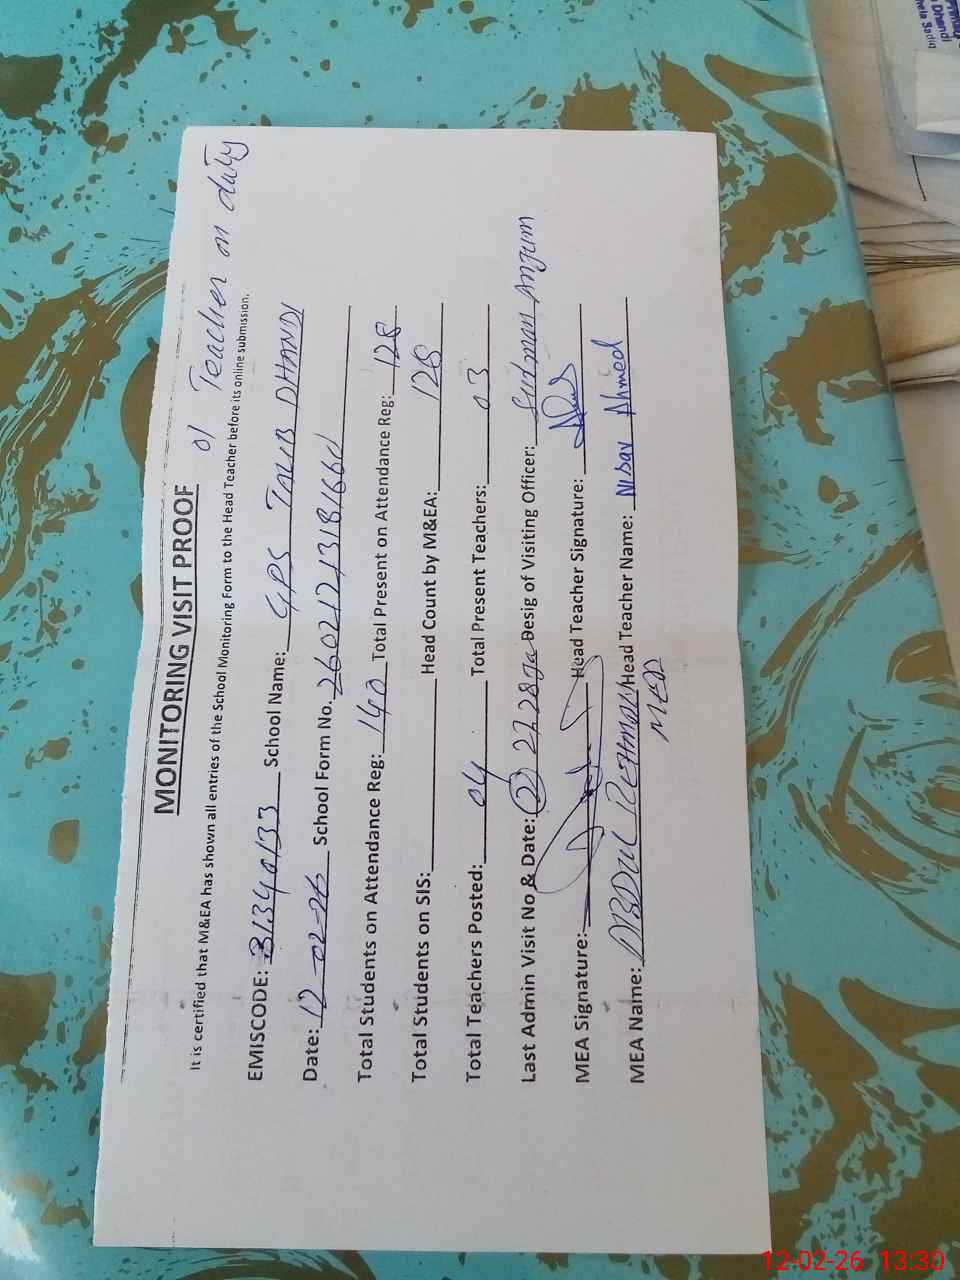 MONITORING VISIT PROOF
01 Teacher on duty
It is certified that M&EA has shown all entries of the School Monitoring Form to the Head Teacher before its online submission.
EMISCODE: 31340133 School Name: GPS TALIB DHANDI
Date: 12-02-26 School Form No. 
Total Students on Attendance Reg: 140 Total Present on Attendance Reg: 128
Total Students on SIS: Head Count by M&EA: 128
Total Teachers Posted: 04 Total Present Teachers: 03
Last Admin Visit No & Date: (2) 27, 28 Ja Desig of Visiting Officer: Anjum
MEA Signature: Head Teacher Signature:
MEA Name: ABDUL REHMAN Head Teacher Name: Nisar Ahmed
MEA
Dhandi
hela Sadiq
12-02-26 13:30